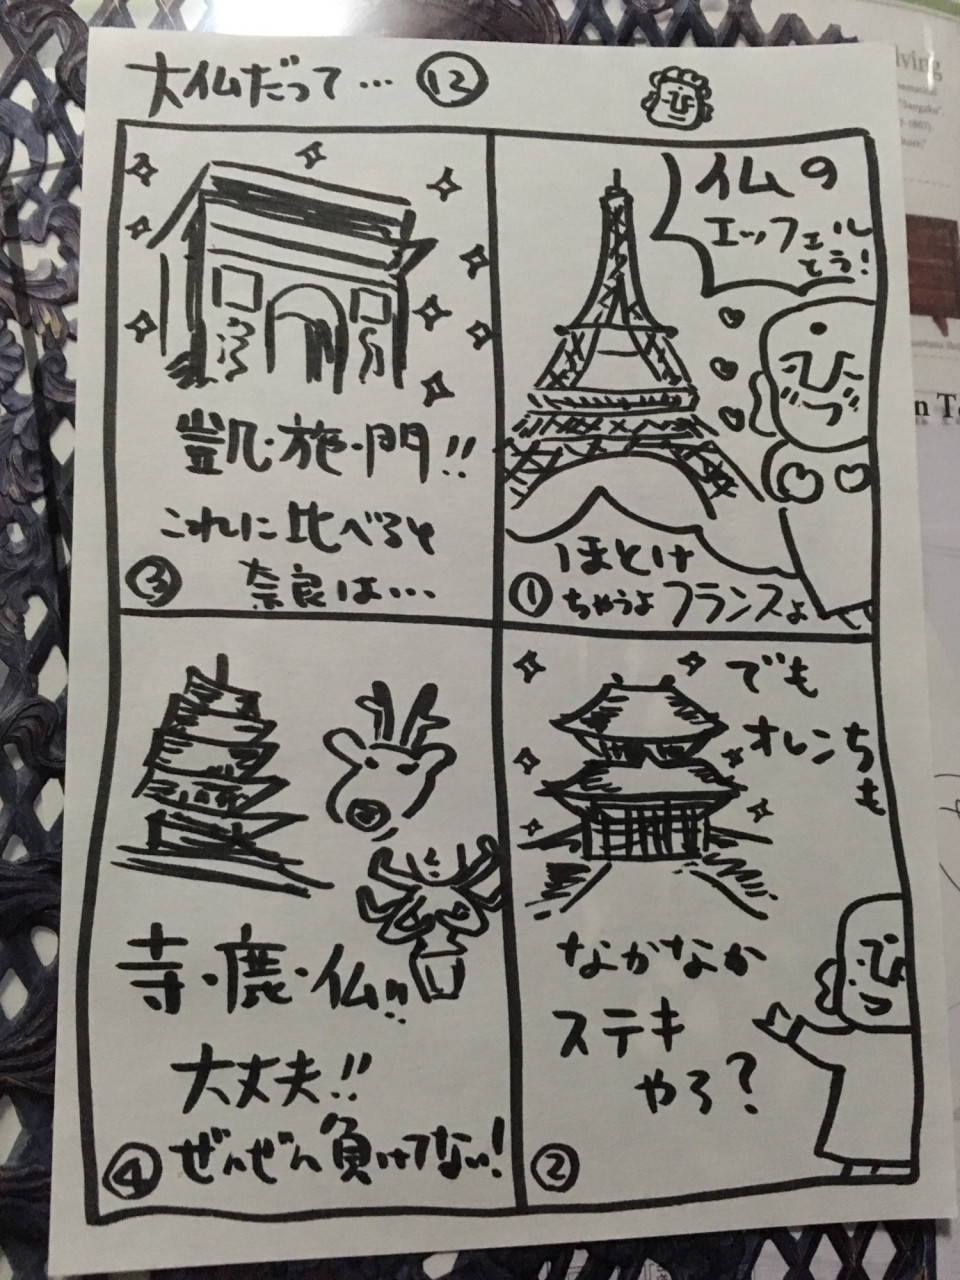 大仏だって… ⑫
仏の
エッフェル
とう!
ほとけ
① ちゃうよ フランスよ
でも
オレンち
も
なかなか
ステキ
やろ?
②
凱・施・門!!
これに比べると
③ 奈良は…
寺・鹿・仏!!
大丈夫!!
④ ぜんぜん負けてない!
lving
n T